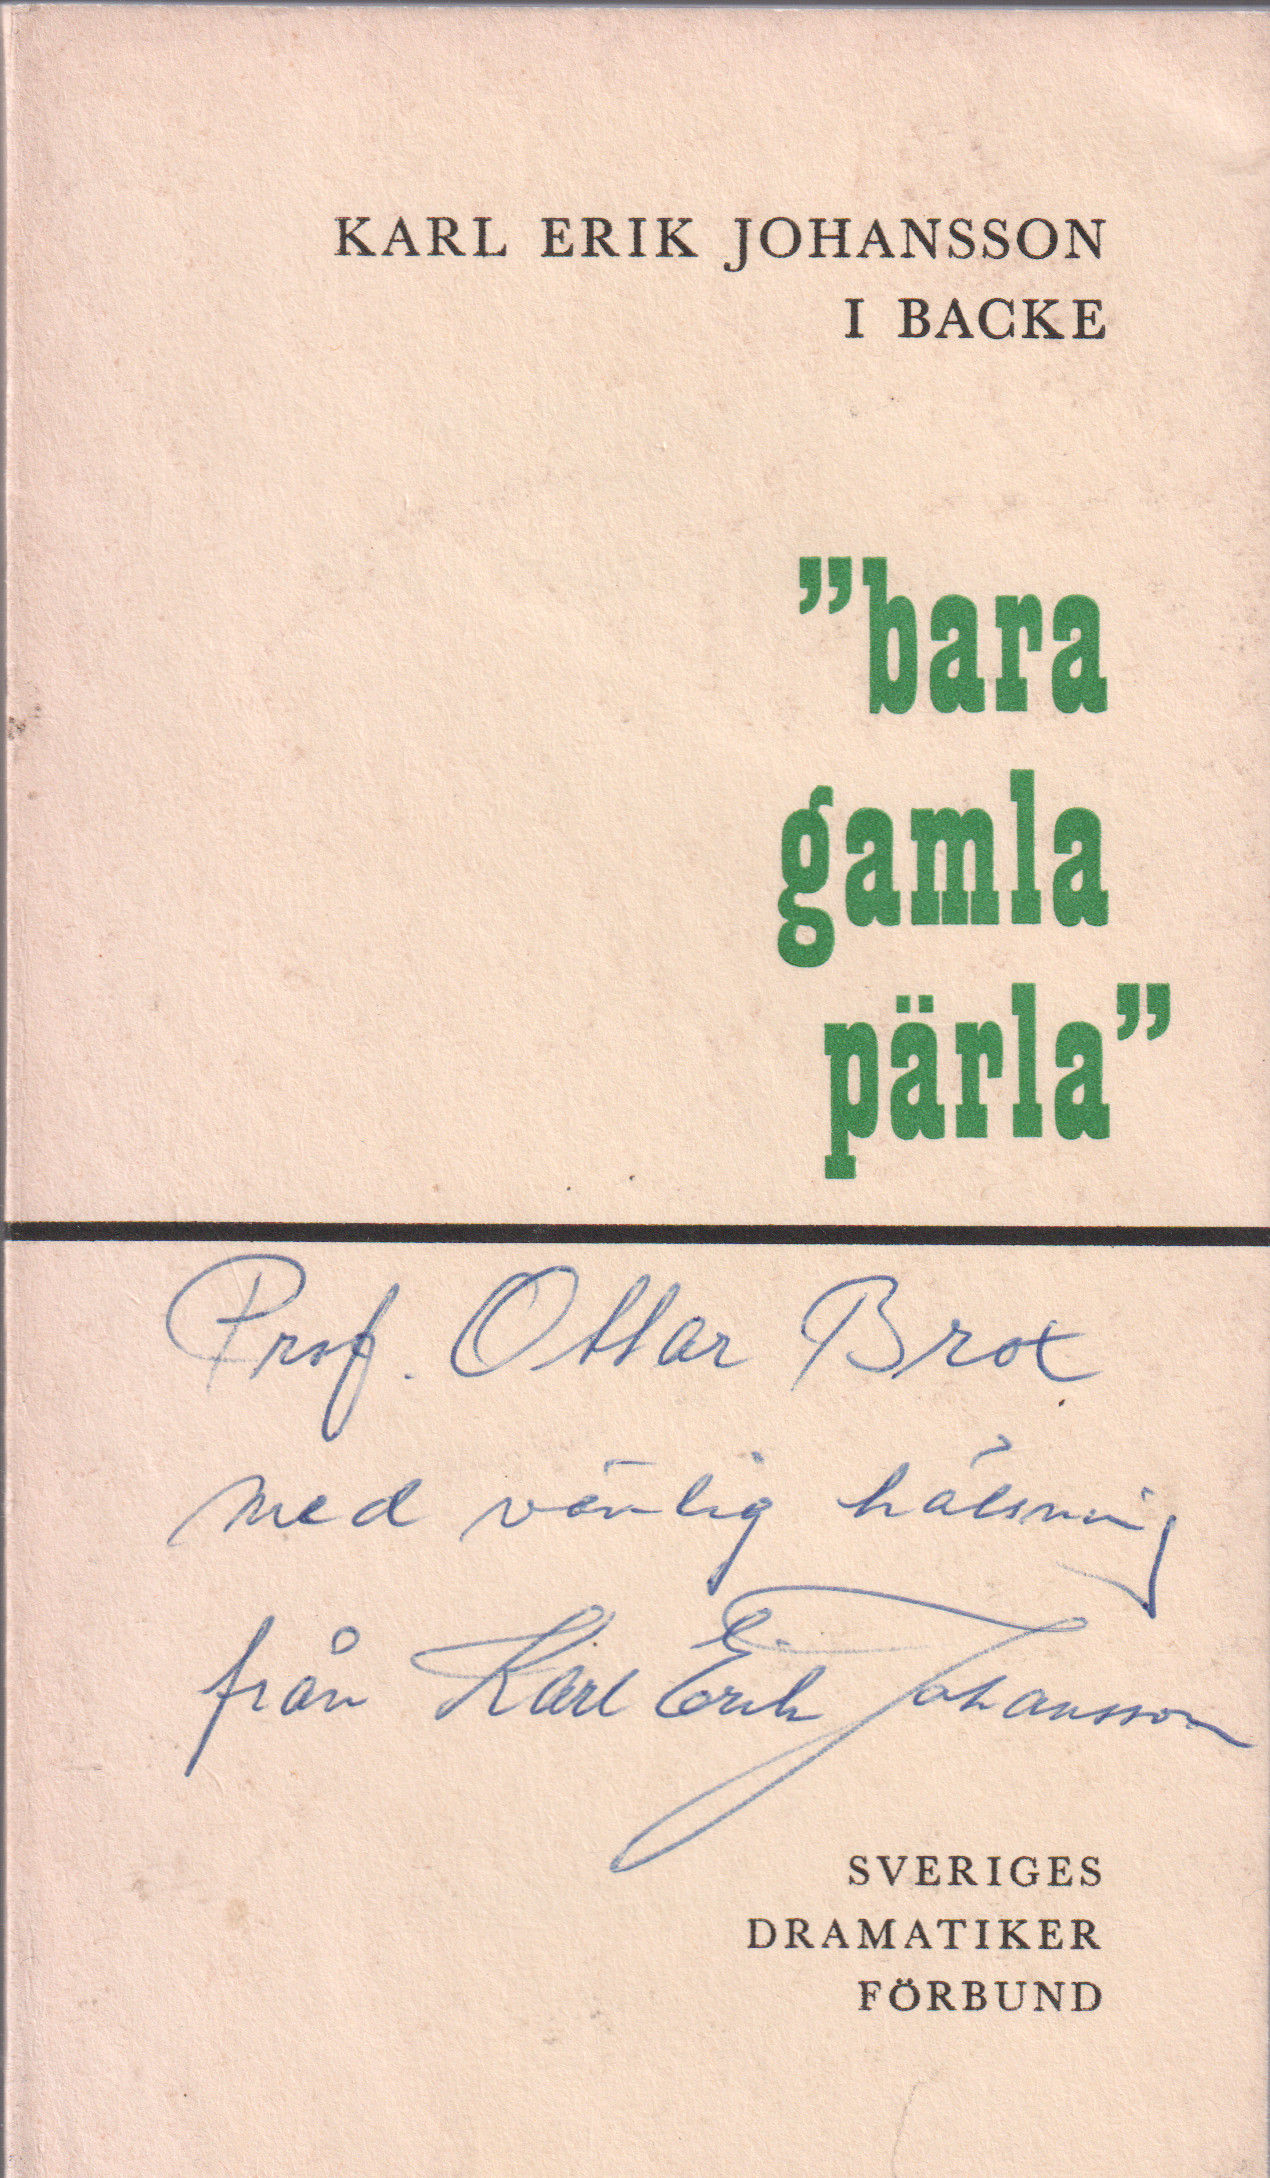 KARL ERIK JOHANSSON
I BACKE
”bara
gamla
pärla”
Prof. Ottar Brox
med vänlig hälsning
från Karl Erik Johansson
SVERIGES
DRAMATIKER
FÖRBUND